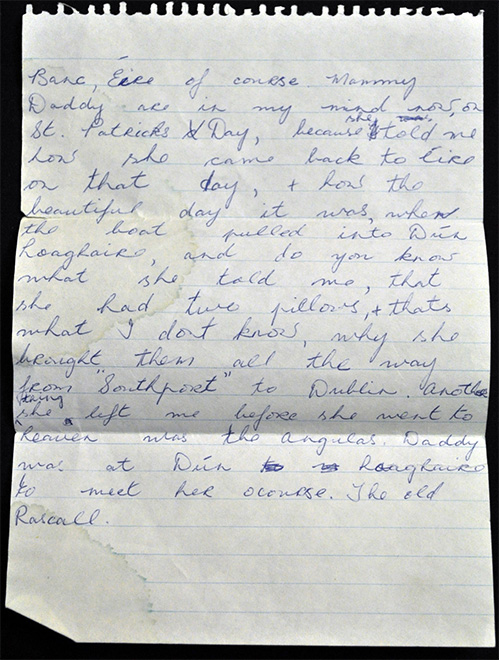 Banc, Éire of course Mammy
Daddy are in my mind now, on
St. Patricks Day, because she told me
how she came back to Eire
on that day, + how the
beautiful day it was, when
the boat pulled into Dún
Loaghaire, and do you know
what she told me, that
she had two pillows, + thats
what I dont know, why she
brought them all the way
from "Southport" to Dublin. Another
thing she left me before she went to
heaven was the Angulas. Daddy
was at Dún Loaghaire
to meet her ocourse. The old
Rascall.